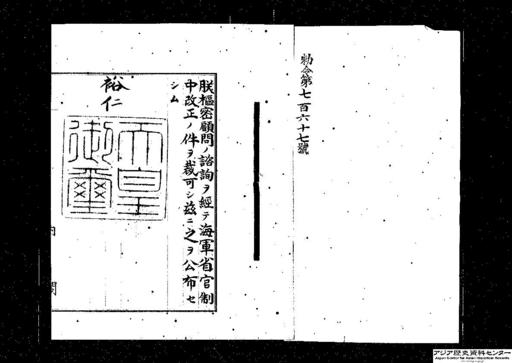 勅令第七百六十七號
朕樞密顧問ノ諮詢ヲ經テ海軍省官制
中改正ノ件ヲ裁可シ茲ニ之ヲ公布セ
シム
裕仁
天皇
御璽
内
閣
アジア歴史資料センター
Japan Center for Asian Historical Records